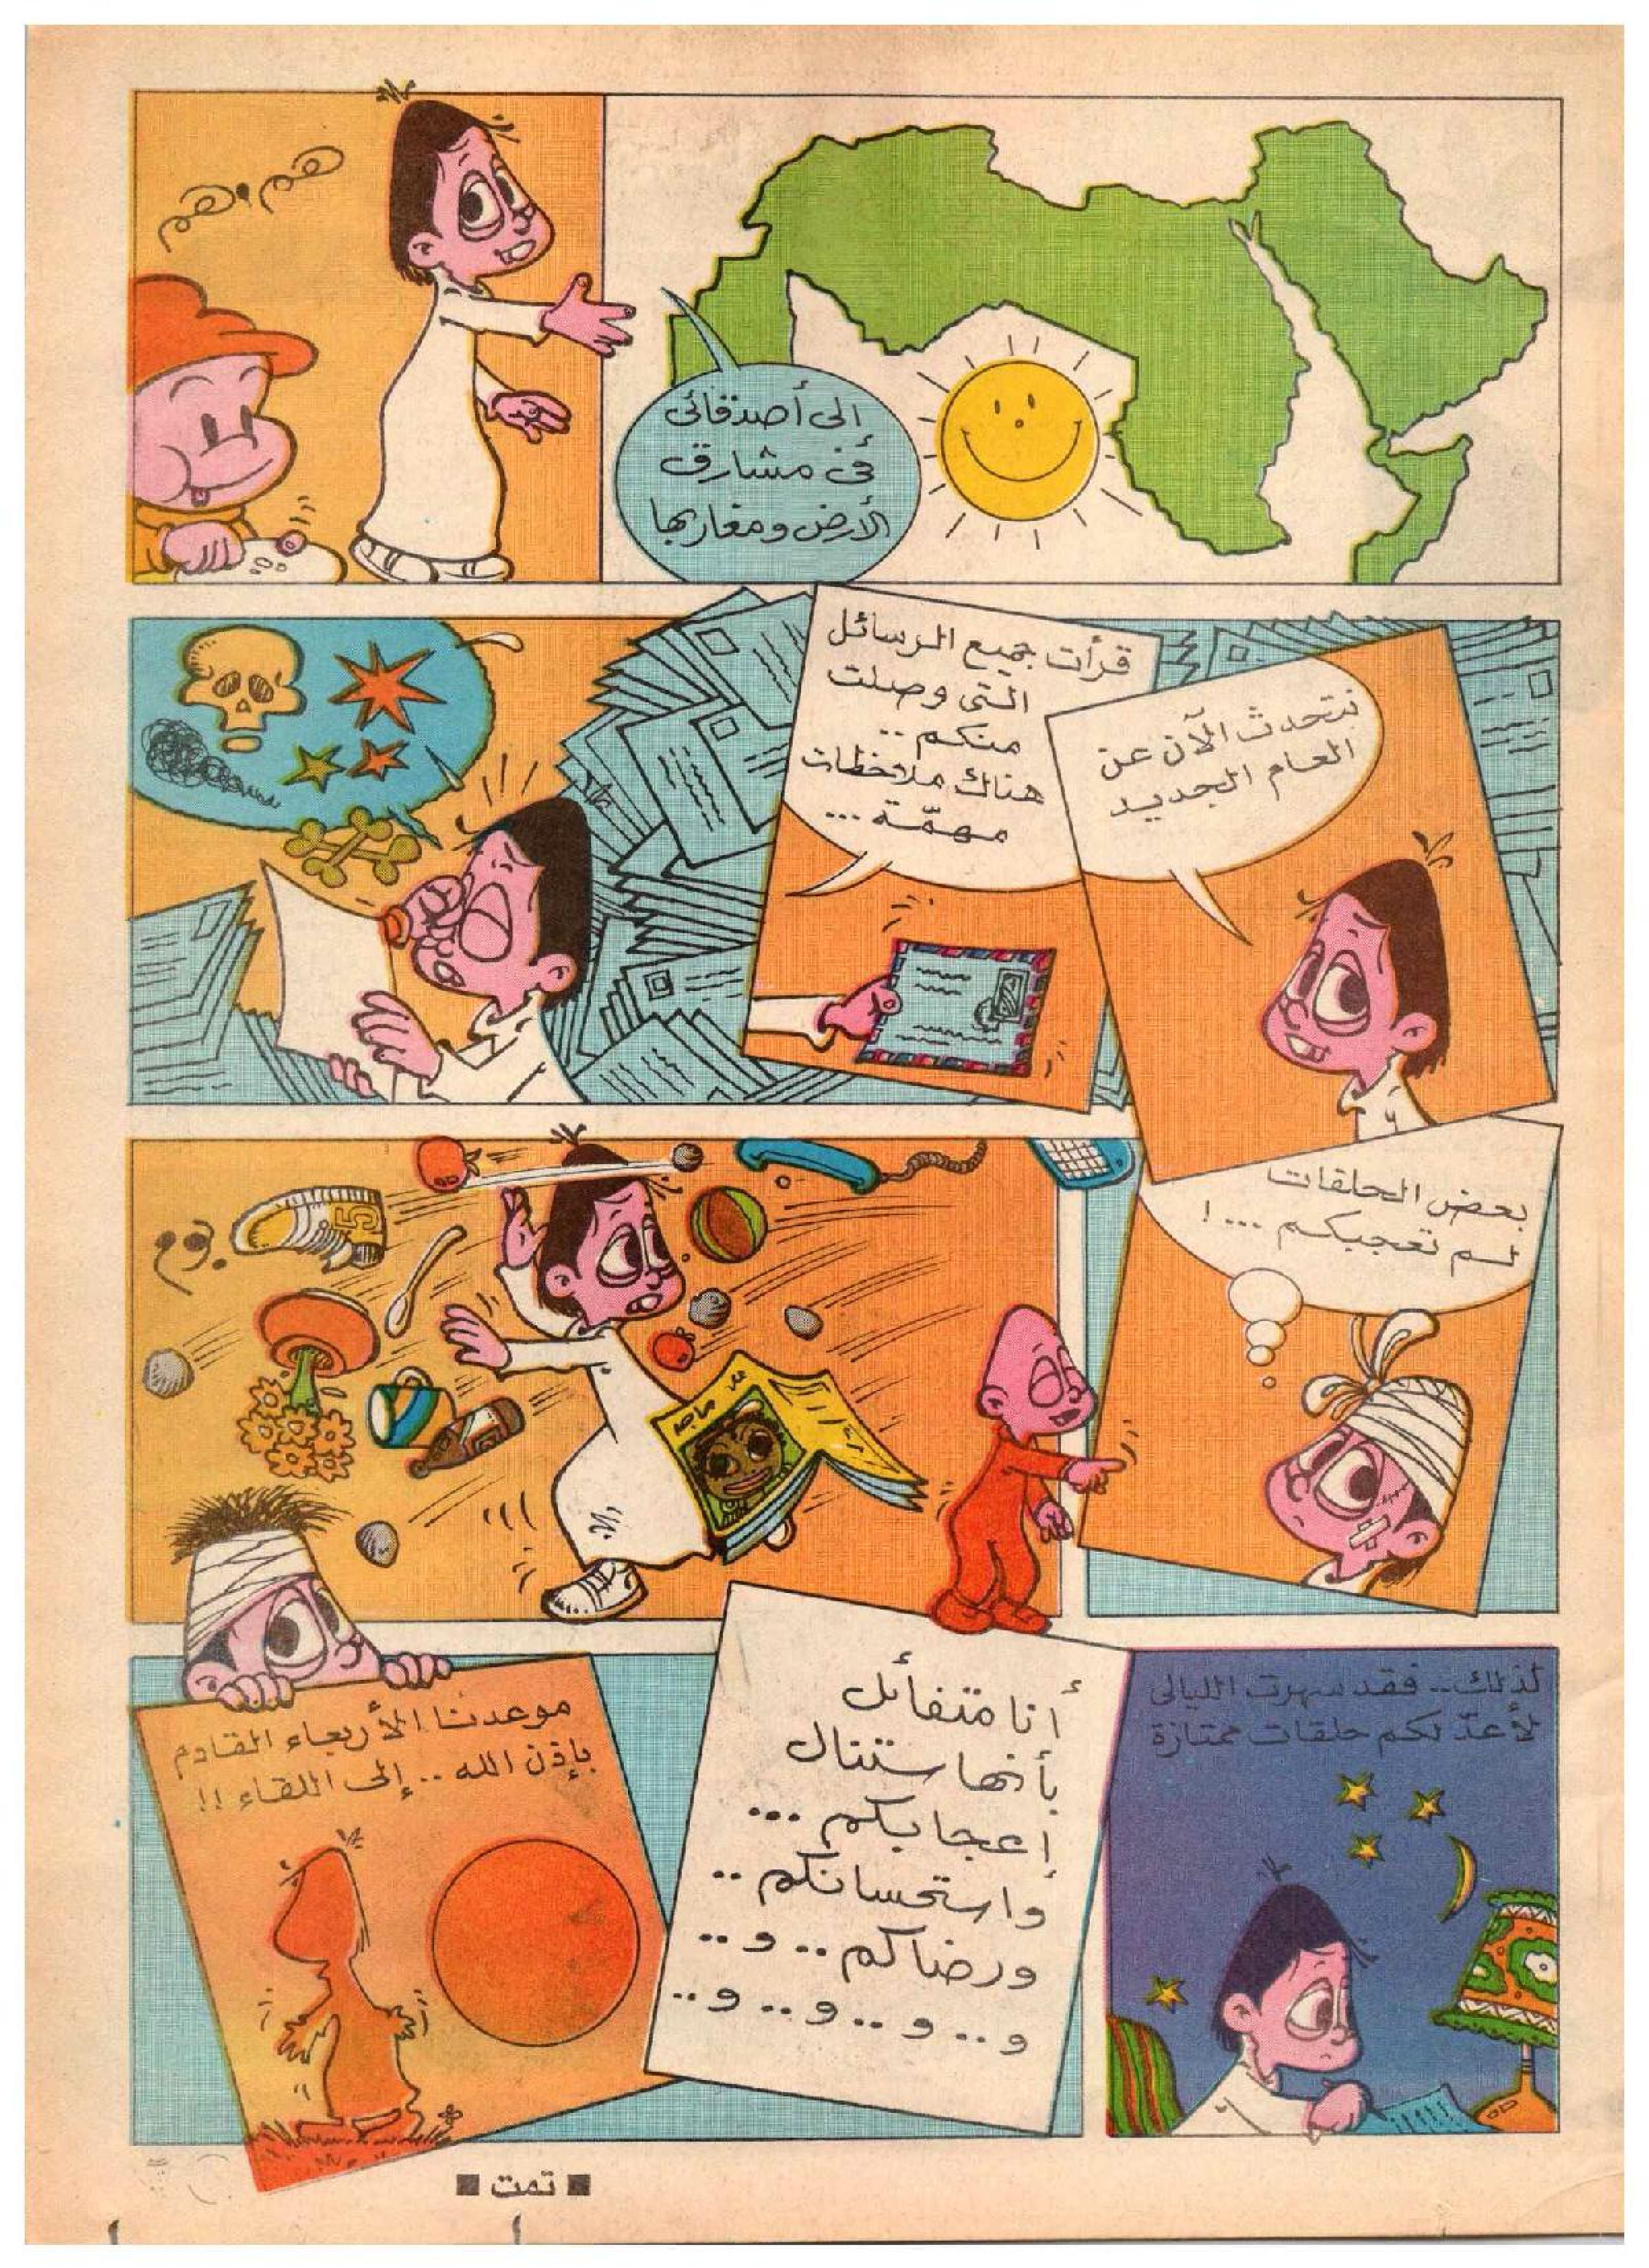 إلى أصدقائى
فى مشارق
الأرض ومغاربها
هم.هم
نتحدث الآن عن
العام الجديد
قرأت جميع الرسائل
التى وصلت
منكم ..
هناك ملاحظات
مهمّة ...
بعض الحلقات
لم تعجبكم ... !
ماجد
15
لذلك .. فقد سهرت الليالى
لأعدّ لكم حلقات ممتازة
أنا متفائل
بأنها ستنال
إعجابكم ...
واستحسانكم ..
ورضاكم .. و ..
و .. و .. و .. و ..
موعدنا الأربعاء القادم
بإذن الله .. إلى اللقاء !!
■ تمت ■